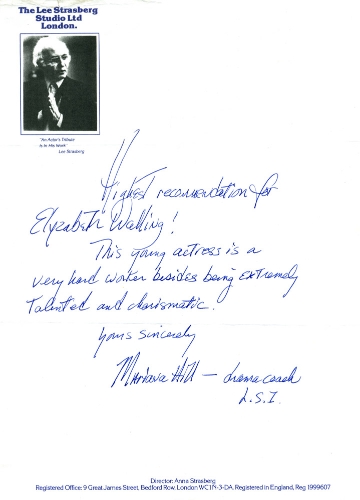 The Lee Strasberg
Studio Ltd
London.
"An Actor's Tribute
Is In His Work"
Lee Strasberg
Highest recommendation for
Elyzabeth Walling!
This young actress is a
very hard worker besides being extremely
talented and charismatic.
Yours Sincerely
Mariana Hill – drama coach
L.S.I.
Director: Anna Strasberg
Registered Office: 9 Great James Street, Bedford Row, London WC1N-3-DA. Registered in England, Reg 1999607